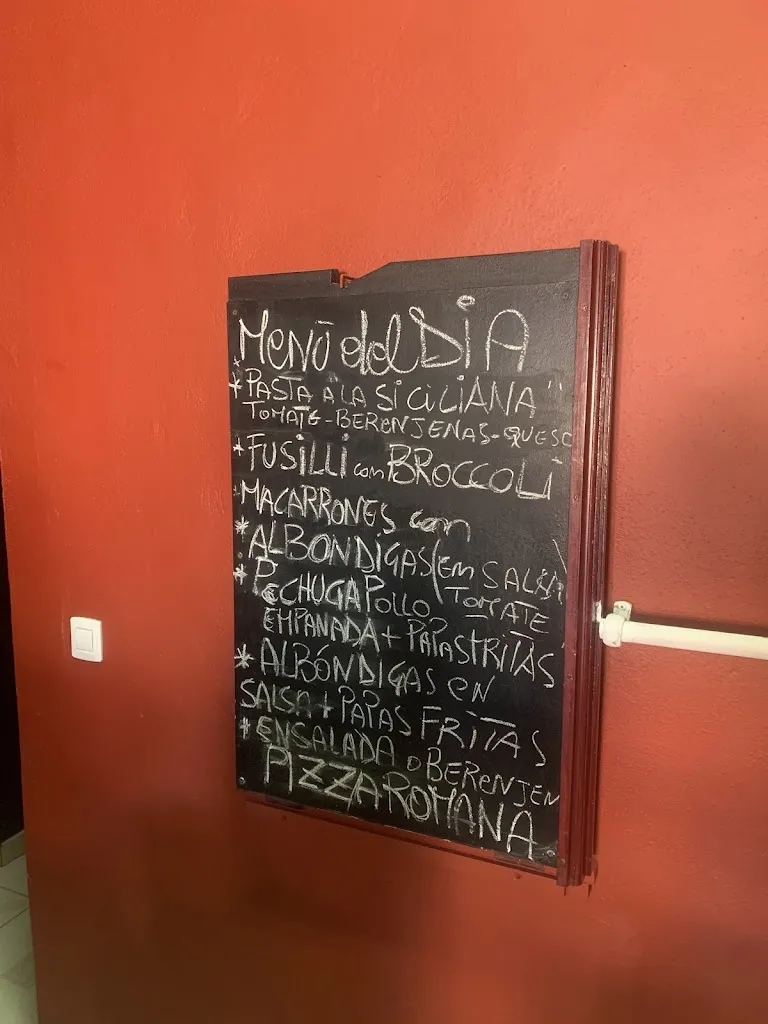 MENÙ del DÌA
* PASTA A'LA SICILIANA"
TOMATE-BERENJENAS-QUESO
* FUSILLI con BROCCOLI
MACARRONES con
* ALBONDIGAS (EM SALSA
TOMATE
* PECHUGA POLLO
EMPANADA + PAPASTRITAS
* ALBÓNDIGAS EN
SALSA + PAPAS FRITAS
* ENSALADA O BERENJEN
PIZZA ROMANA